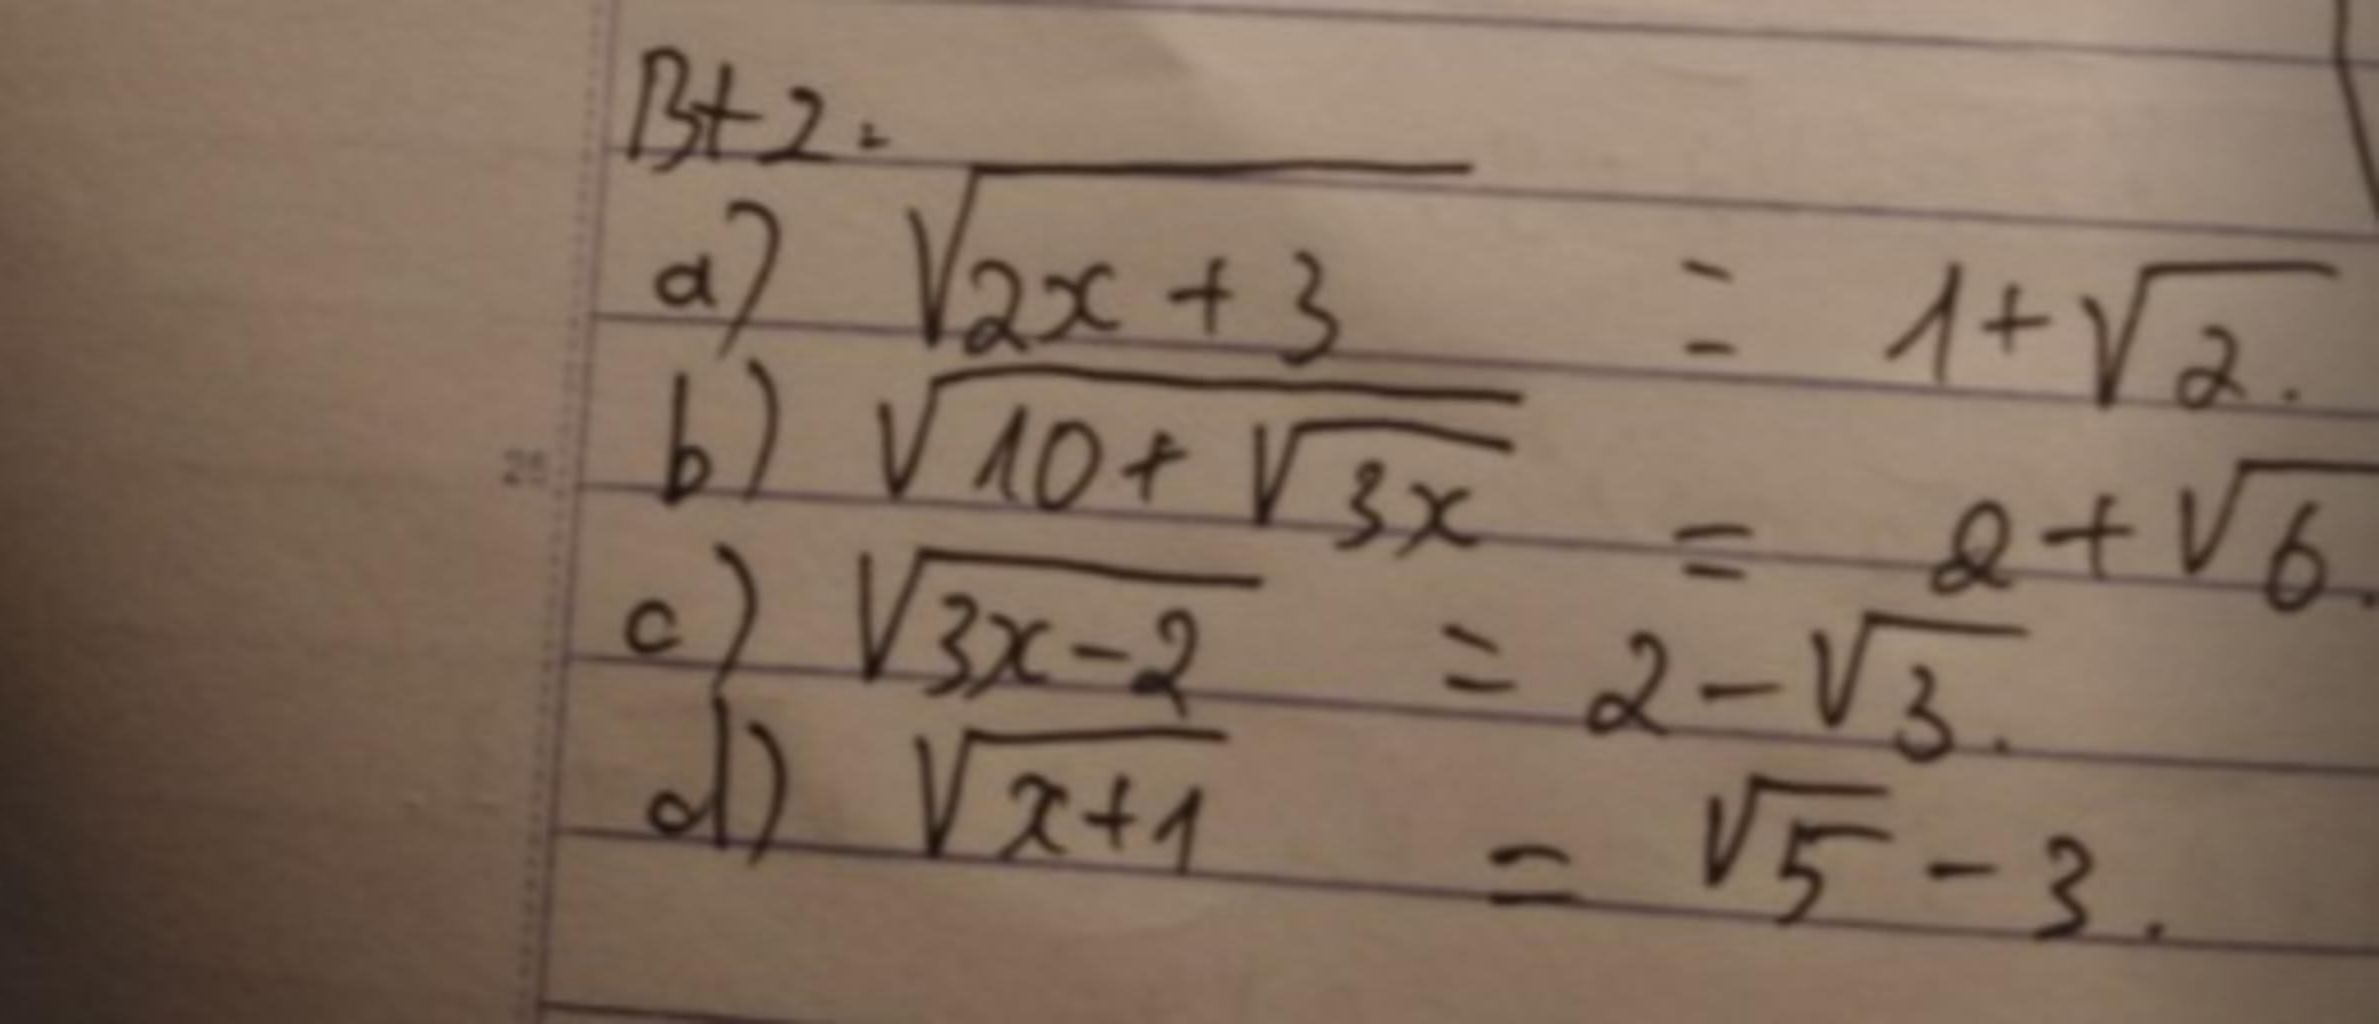 Bt 2:
a) √(2x + 3) = 1 + √2.
b) √(10 + √(3x)) = 2 + √6.
c) √(3x - 2) = 2 - √3.
d) √(x + 1) = √5 - 3.